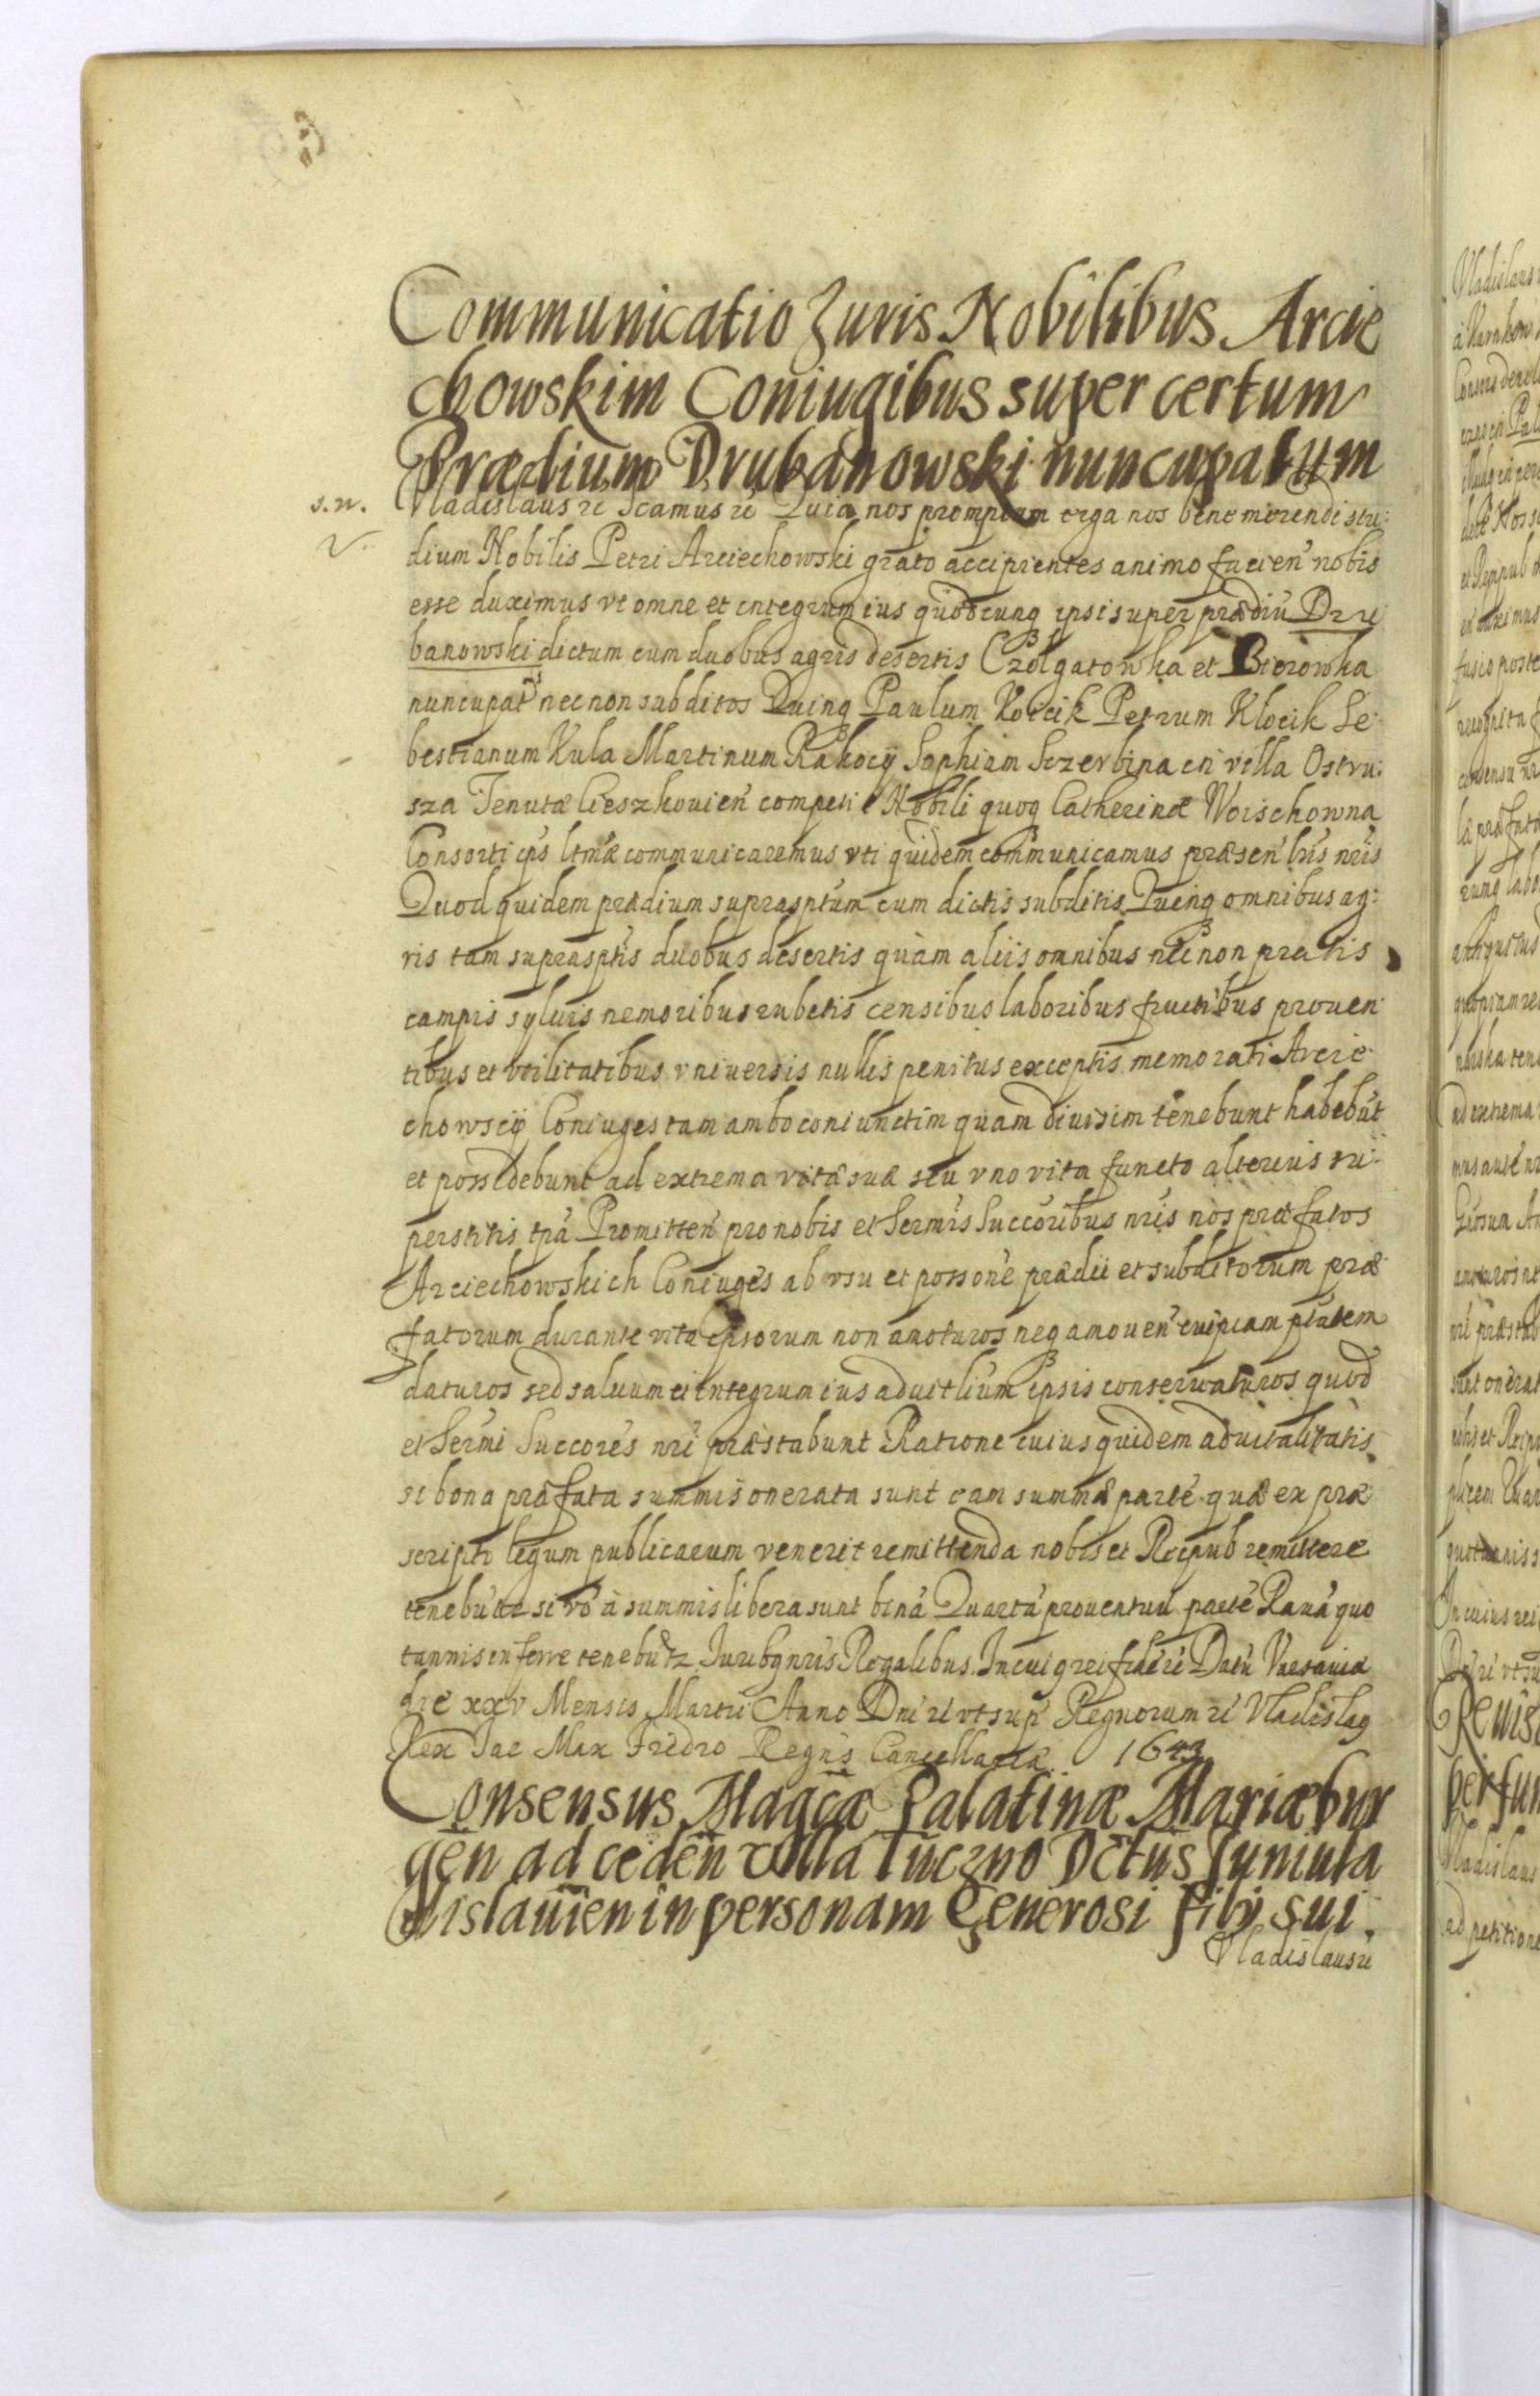 Communicatio Juris Nobilibus Arcie
chowskim Coniugibus super certum
Prædium Drubanowski nuncupatum
s. n. Vladislaus zc Scamus zc Quia nos promptum erga nos bene merendi stu:
dium Nobilis Petri Arciechowski grato accipientes animo facien nobis
esse duximus vt omne et integrum ius quodcunq ipsi super prædiu Dru
banowski dictum cum duobus agris desertis Czolgatowka et Bierowka
nuncupat nec non subditos Quinq Paulum Kotcik Petrum Klocik Se:
bestianum Kula Martinum Rakocÿ Sophiam Sczerbina in villa Ostru:
sza Tenutæ Cieszkouien competit Nobili quoq Catherinæ Woischowna
Consorti eps ltmæ communicaremus vti quidem communicamus præsen lris nris
Quod quidem prædium suprasptum cum dictis subditis Quinq omnibus ag:
ris tam supraspts duobus desertis quàm aliis omnibus nec non pratis
campis syluis nemoribus rubetis censibus laboribus fructibus prouen
tibus et vtilitatibus vniuersis nullis penitus exceptis memorati Arcie
chowscÿ Coniuges tam ambo coniunctim quam diuisim tenebunt habebut
et possidebunt ad extrema vitæ suæ seu vno vita functo alterius su:
perstitis tpa Promitten pro nobis et Sermis Succoribus nris nos præfatos
Arciechowskich Coniuges ab vsu et possone prædii et subditorum præ
fatorum durante vita ipsorum non amoturos neq amouen cuipiam ptatem
daturos sed saluum et integrum ius aduitlium ipsis conseruaturos quod
et Sermi Succores nri præstabunt Ratione cuius quidem aduitalitatis
si bona præfata summis onerata sunt eam summæ parte quæ ex præ
scripto legum publicarum venerit remittenda nobis et Reipub remittere
tenebutr si vo à summis libera sunt bina Quarta prouentuu parte Raua quo
tannis inferre tenebutr Juribq nris Regalibus. In cuiq rei fide zc Datu Varsauiæ
die xxv Mensis Martii Anno Dni zc vt sup Regnorum zc Vladislaq
Rex Jac Max Fredro Regns Cancellariæ 1643
Consensus Magcæ Palatinæ Mariæbur
gen ad ceden villa Tuczno Dctus Juniula
dislauien in personam Generosi filÿ sui.
Vladislaus zc